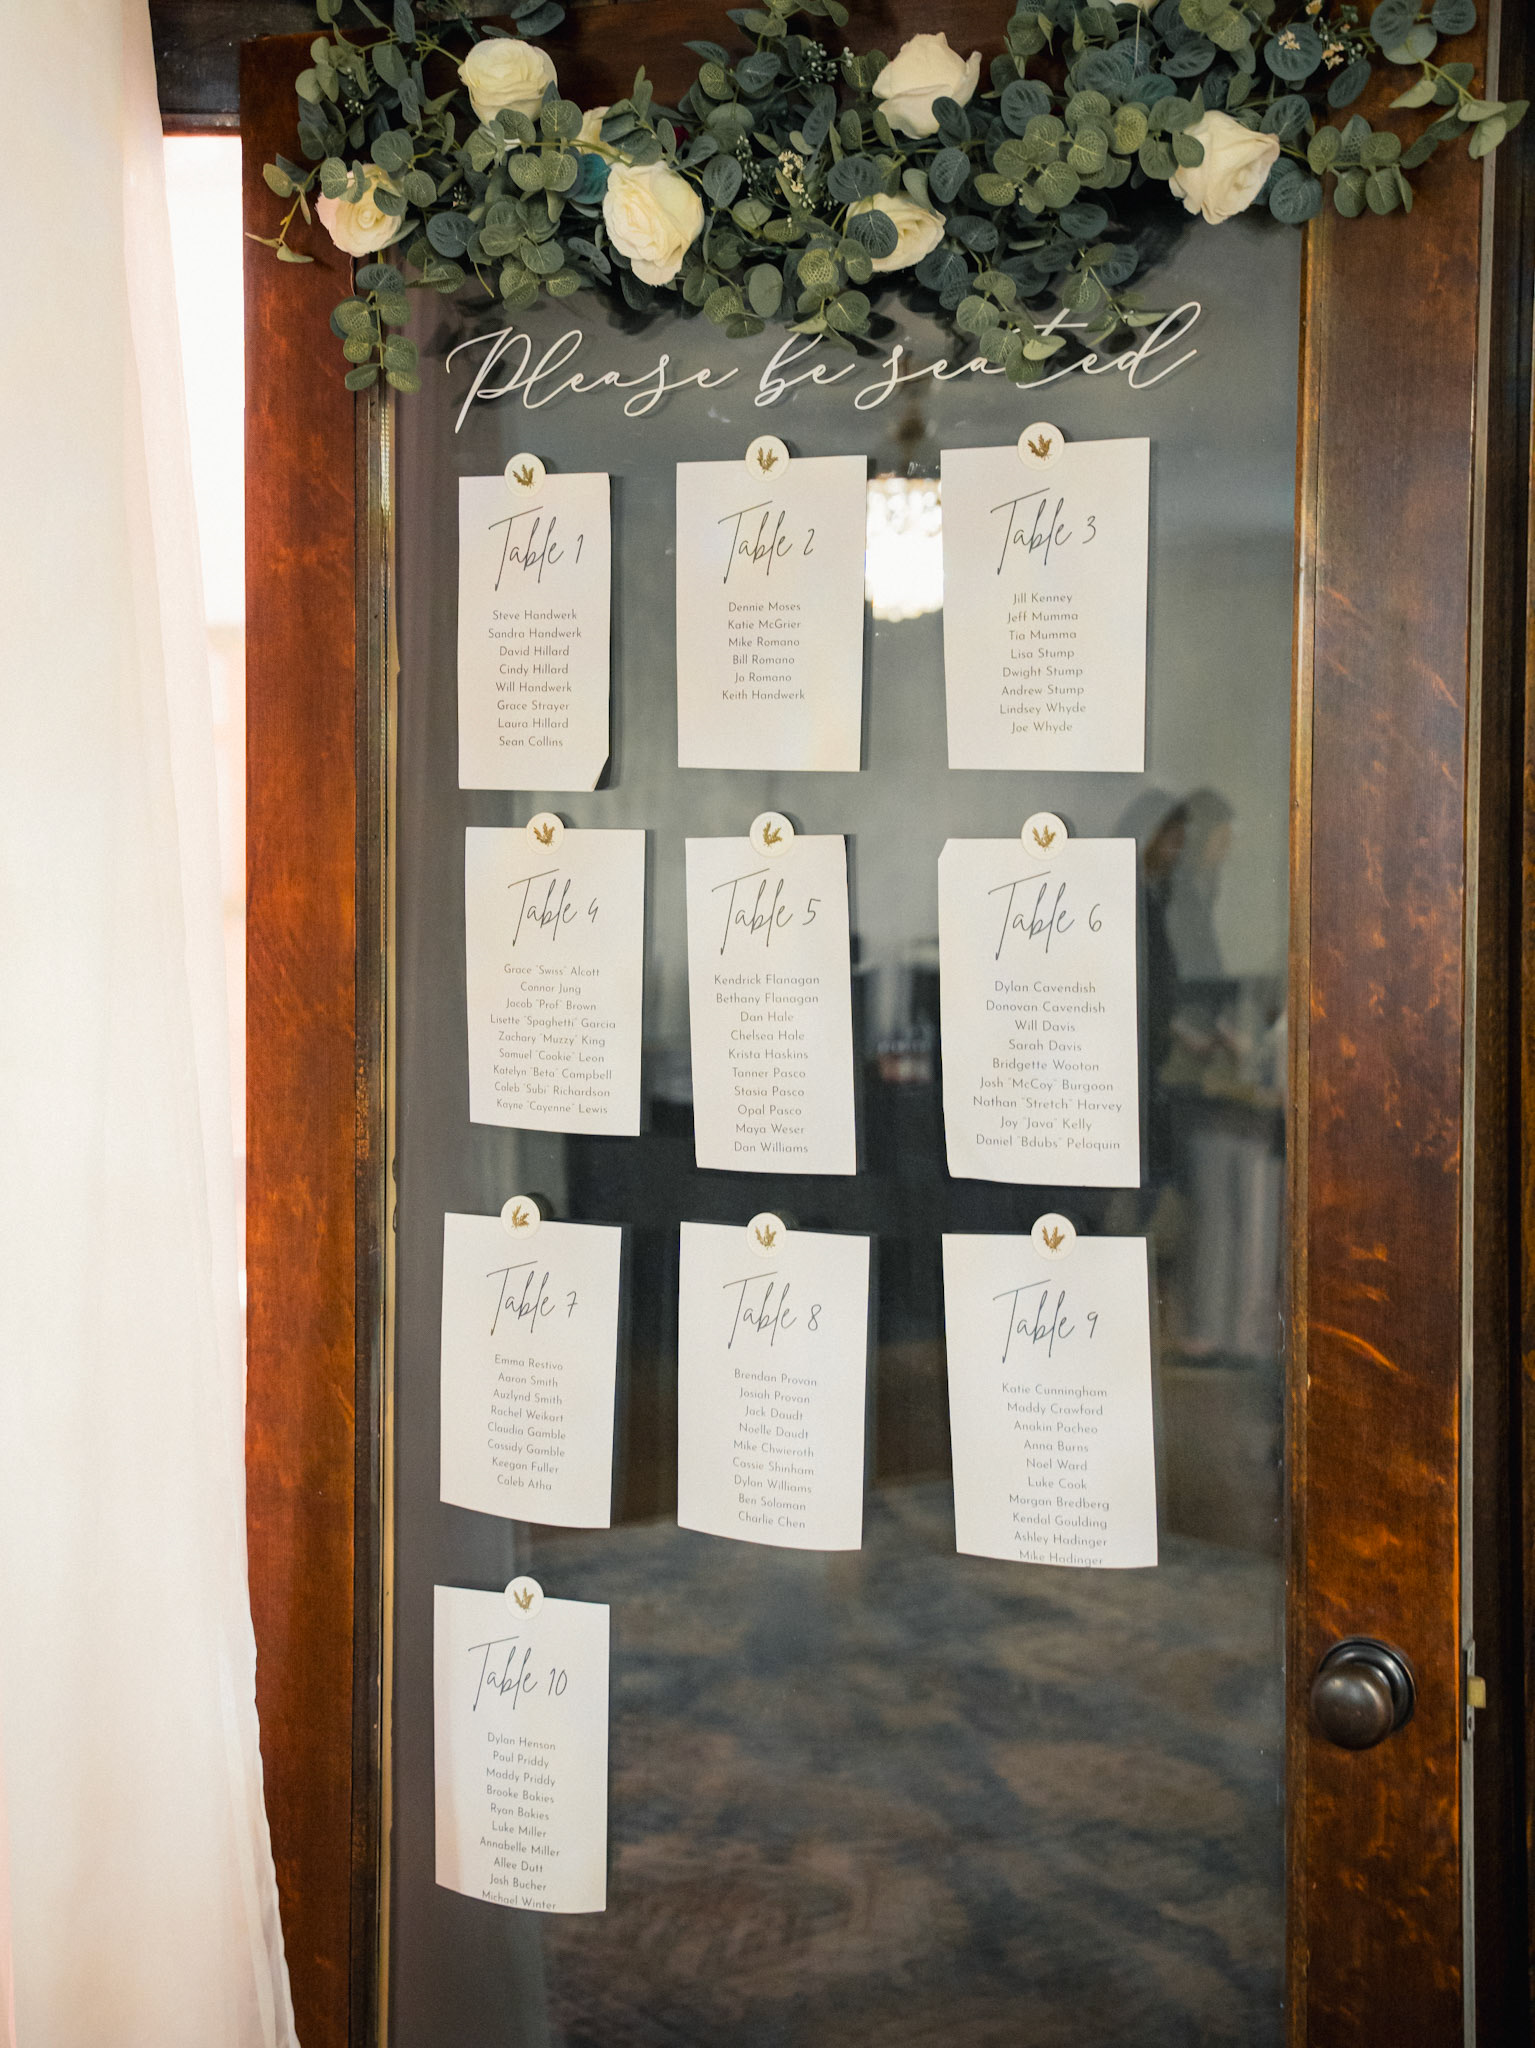 Please be seated
Table 1
Steve Handwerk
Sandra Handwerk
David Hillard
Cindy Hillard
Will Handwerk
Grace Strayer
Laura Hillard
Sean Collins
Table 2
Dennie Moses
Katie McGrier
Mike Romano
Bill Romano
Jo Romano
Keith Handwerk
Table 3
Jill Kenney
Jeff Mumma
Tia Mumma
Lisa Stump
Dwight Stump
Andrew Stump
Lindsey Whyde
Joe Whyde
Table 4
Grace "Swiss" Alcott
Connor Jung
Jacob "Prof" Brown
Lisette "Spaghetti" Garcia
Zachary "Muzzy" King
Samuel "Cookie" Leon
Katelyn "Beta" Campbell
Caleb "Subi" Richardson
Kayne "Cayenne" Lewis
Table 5
Kendrick Flanagan
Bethany Flanagan
Dan Hale
Chelsea Hale
Krista Haskins
Tanner Pasco
Stasia Pasco
Opal Pasco
Maya Weser
Dan Williams
Table 6
Dylan Cavendish
Donovan Cavendish
Will Davis
Sarah Davis
Bridgette Wooton
Josh "McCoy" Burgoon
Nathan "Stretch" Harvey
Joy "Java" Kelly
Daniel "Bdubs" Peloquin
Table 7
Emma Restivo
Aaron Smith
Auzlynd Smith
Rachel Weikart
Claudia Gamble
Cassidy Gamble
Keegan Fuller
Caleb Atha
Table 8
Brendan Provan
Josiah Provan
Jack Daudt
Noelle Daudt
Mike Chwieroth
Cassie Shinham
Dylan Williams
Ben Soloman
Charlie Chen
Table 9
Katie Cunningham
Maddy Crawford
Anakin Pacheo
Anna Burns
Noel Ward
Luke Cook
Morgan Bredberg
Kendal Goulding
Ashley Hadinger
Mike Hadinger
Table 10
Dylan Henson
Paul Priddy
Maddy Priddy
Brooke Bakies
Ryan Bakies
Luke Miller
Annabelle Miller
Allee Dutt
Josh Bucher
Michael Winter